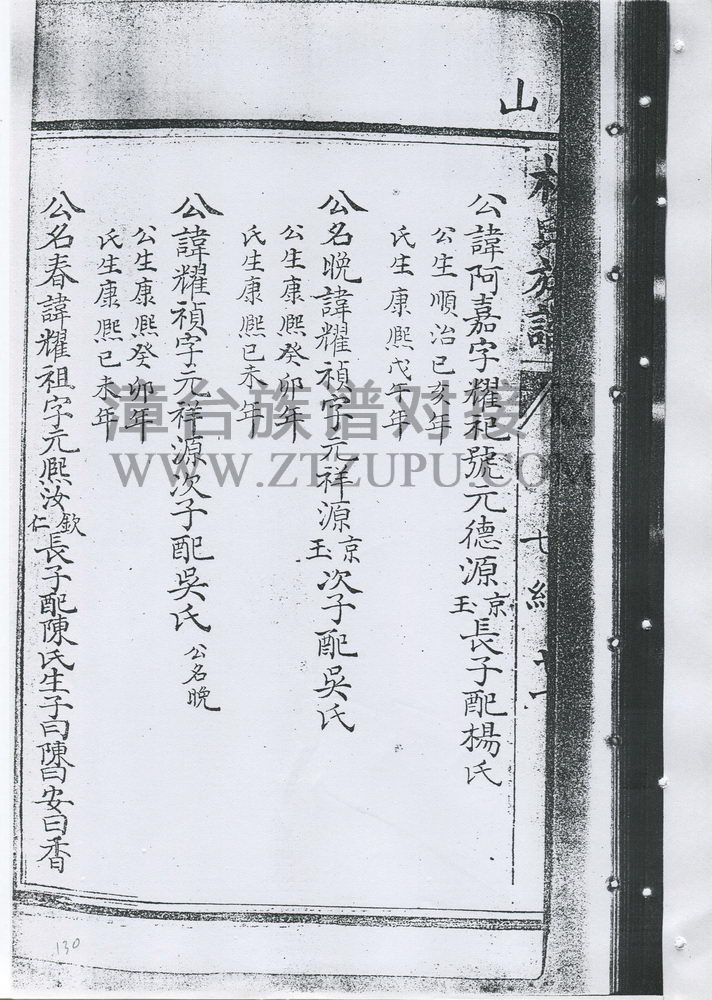 山
林氏族譜
七
公諱阿嘉字耀祀號元德源京玉長子配楊氏
公生順治己亥年
氏生康熙戊午年
公名晚諱耀禎字元祥源京玉次子配吳氏
公生康熙癸卯年
氏生康熙己未年
公諱耀禎字元祥源次子配吳氏 公名晚
公生康熙癸卯年
氏生康熙己未年
公名春諱耀祖字元熙汝欽仁長子配陳氏生子曰陳曰安曰香
漳台族谱对接
WWW.ZTZUPU.COM
130